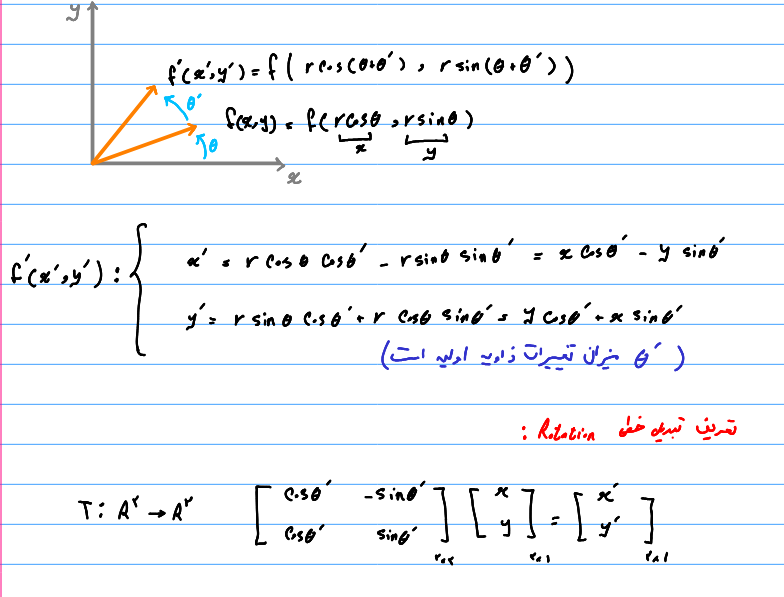 y
f′(x′,y′) = f( r cos(θ+θ′) , r sin(θ+θ′) )
θ′
f(x,y) = f( r cosθ , r sinθ )
θ
x y
x
f′(x′,y′) : {
x′ = r cosθ cosθ′ - r sinθ sinθ′ = x cosθ′ - y sinθ′
y′ = r sinθ cosθ′ + r cosθ sinθ′ = y cosθ′ + x sinθ′
( θ′ میزان تغییرات زاویه اولیه است )
تعریف تبدیل خطی Rotation :
T: R² → R² [ cosθ′ -sinθ′ ] [ x ] = [ x′ ]
[ cosθ′ sinθ′ ] [ y ] [ y′ ]
۲×۲ ۲×۱ ۲×۱